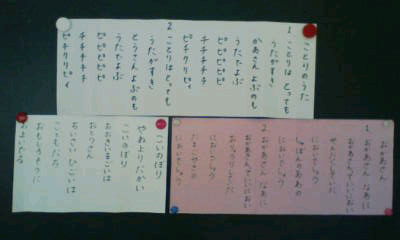 ことりのうた
1. ことりはとっても
うたがすき
かあさんよぶのも
うたでよぶ
ピピピピピ
チチチチチ
ピチクリピィ
2. ことりはとっても
うたがすき
とうさんよぶのも
うたでよぶ
ピピピピピ
チチチチチ
ピチクリピィ
こいのぼり
やねよりたかい
こいのぼり
おおきいまごいは
おとうさん
ちいさいひごいは
こどもたち
おもしろそうに
およいでる
おかあさん
1. おかあさん なあに
おかあさんていいにおい
せんたくしていた
においでしょう
しゃぼんのあわの
においでしょう
2. おかあさん なあに
おかあさんていいにおい
おりょうりしていた
においでしょう
たまごやきの
においでしょう